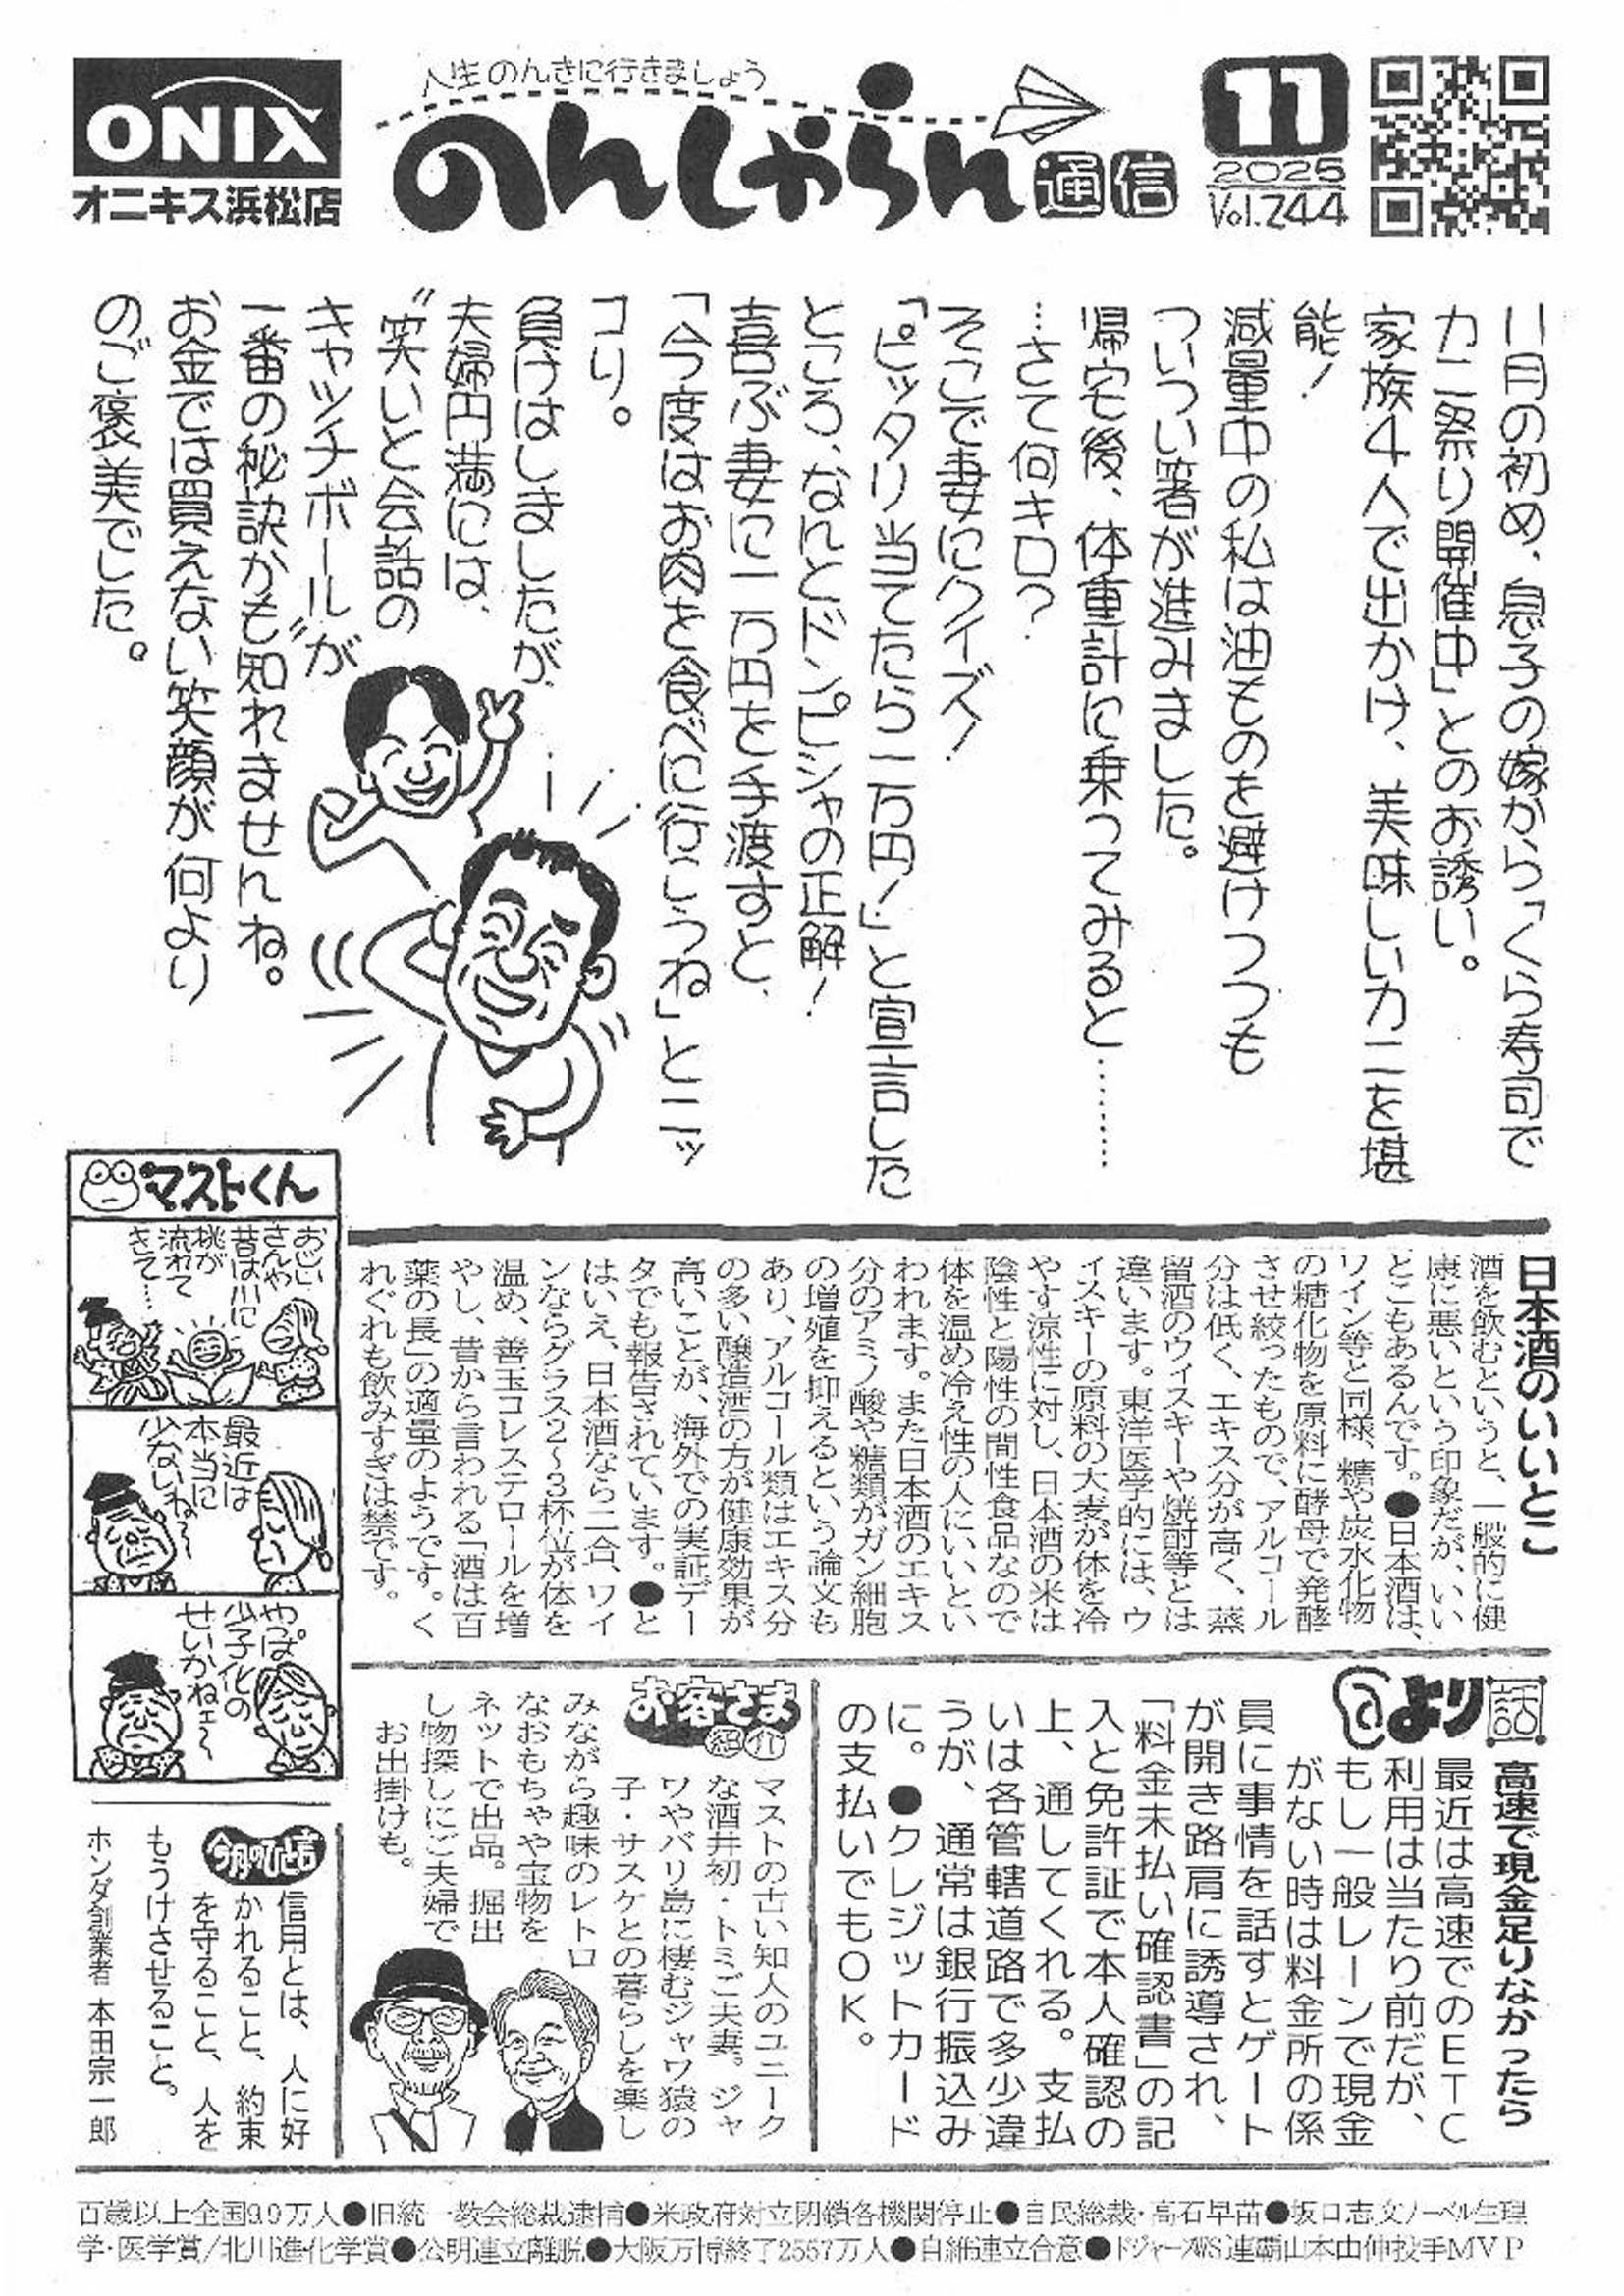 ONIX
オニキス浜松店
人生のんきに行きましょう
のんしゃらん通信
11
2025
Vol.244
11月の初め、息子の嫁から「くら寿司で
カニ祭り開催中」とのお誘い。
家族4人で出かけ、美味しいカニを堪
能！
減量中の私は油ものを避けつつも
ついつい箸が進みました。
帰宅後、体重計に乗ってみると………
…さて何キロ？
そこで妻にクイズ！
「ピッタリ当てたら一万円！」と宣言した
ところ、なんとドンピシャの正解！
喜ぶ妻に一万円を手渡すと、
「今度はお肉を食べに行こうね」とニッ
コリ。
負けはしましたが、
夫婦円満には、
〝笑いと会話の
キャッチボール〟が
一番の秘訣かも知れませんね。
お金では買えない笑顔が何より
のご褒美でした。
マストくん
おじい
さんや
昔は川に
桃が
流れて
きて…
最近は
本当に
少ないね〜
やっぱ
少子化の
せいかねェ〜
日本酒のいいとこ
酒を飲むというと、一般的に健
康に悪いという印象だが、いい
とこもあるんです。●日本酒は、
ワイン等と同様、糖や炭水化物
の糖化物を原料に酵母で発酵
させ絞ったもので、アルコール
分は低く、エキス分が高く、蒸
留酒のウィスキーや焼酎等とは
違います。東洋医学的には、ウ
ィスキーの原料の大麦が体を冷
やす涼性に対し、日本酒の米は
陰性と陽性の間性食品なので
体を温め冷え性の人にいいとい
われます。また日本酒のエキス
分のアミノ酸や糖類がガン細胞
の増殖を抑えるという論文も
あり、アルコール類はエキス分
の多い醸造酒の方が健康効果が
高いことが、海外での実証デー
タでも報告されています。●と
はいえ、日本酒なら二合、ワイ
ンならグラス2〜3杯位が体を
温め、善玉コレステロールを増
やし、昔から言われる「酒は百
薬の長」の適量のようです。く
れぐれも飲みすぎは禁です。
より話
高速で現金足りなかったら
最近は高速でのETC
利用は当たり前だが、
もし一般レーンで現金
がない時は料金所の係
員に事情を話すとゲート
が開き路肩に誘導され、
「料金未払い確認書」の記
入と免許証で本人確認の
上、通してくれる。支払
いは各管轄道路で多少違
うが、通常は銀行振込み
に。●クレジットカード
の支払いでもOK。
お客さま紹介
マストの古い知人のユニーク
な酒井初・トミご夫妻。ジャ
ワやバリ島に棲むジャワ猿の
子・サスケとの暮らしを楽し
みながら趣味のレトロ
なおもちゃや宝物を
ネットで出品。掘出
し物探しにご夫婦で
お出掛けも。
今月のひと言
信用とは、人に好
かれること、約束
を守ること、人を
もうけさせること。
ホンダ創業者 本田宗一郎
百歳以上全国9.9万人●旧統一教会総裁逮捕●米政府対立閉鎖各機関停止●自民総裁・高石早苗●坂口志文ノーベル生理
学・医学賞/北川進化学賞●公明連立離脱●大阪万博終了2557万人●自維連立合意●ドジャースWS連覇山本由伸投手MVP